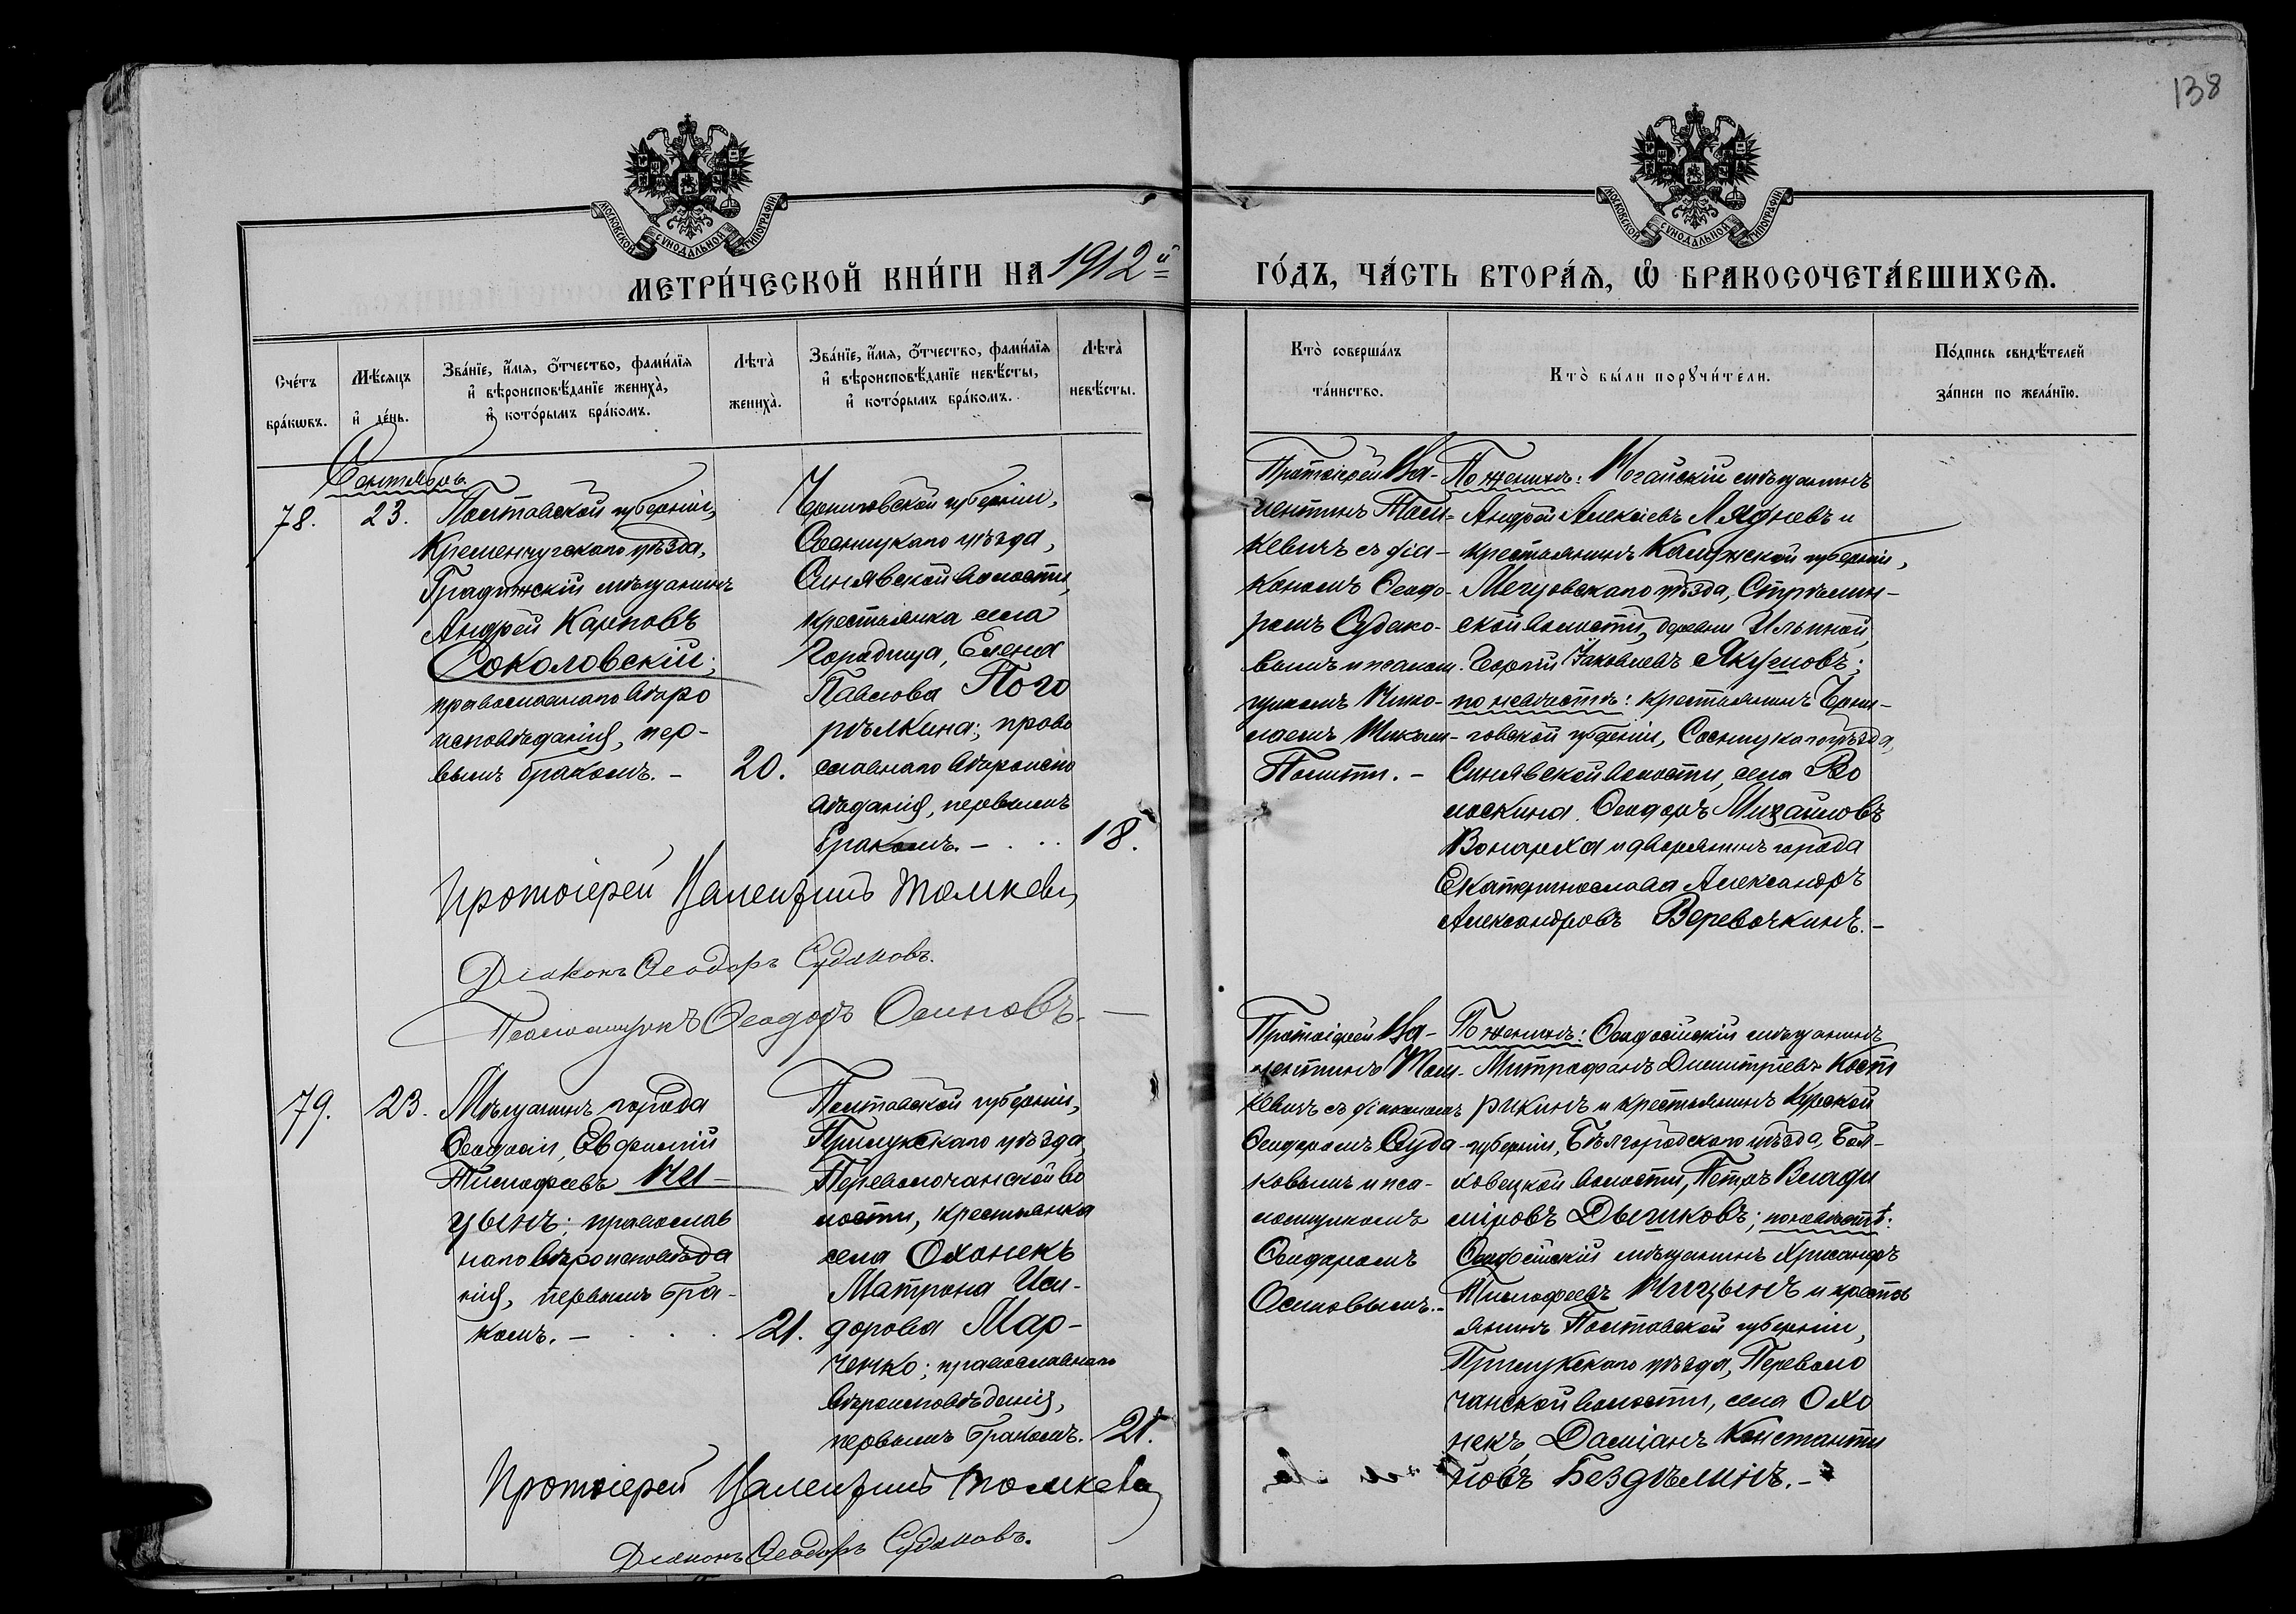 138
МОСКОВСКОЙ СѴНОДАЛЬНОЙ ТИПОГРАФІИ
МОСКОВСКОЙ СѴНОДАЛЬНОЙ ТИПОГРАФІИ
МЕТРИ́ЧЕСКОЙ КНИ́ГИ НА 1912й
ГО́ДЪ, ЧА́СТЬ ВТОРА́Ѧ, Ѡ БРАКОСОЧЕТА́ВШИХСѦ.
Сче́тъ бра́кѡвъ.
Мѣ́сяцъ и де́нь.
Зва́нїе, и́мя, о́тчество, фами́лїя и вѣроисповѣ́данїе жениха̀, и кото́рымъ бра́комъ.
Лѣта̀ жениха̀.
Зва́нїе, и́мя, о́тчество, фами́лїя и вѣроисповѣ́данїе невѣ́сты, и кото́рымъ бра́комъ.
Лѣта̀ невѣ́сты.
Кто̀ соверша́лъ та́инство.
Кто̀ бы́ли порꙋчи́тели.
По́дпись свидѣ́телей за́писи по жела́нїю.
Сентябрь
78.
23.
Полтавской губерніи,
Кременчугскаго уѣзда,
Градижскій мѣщанинъ
Андрей Карповъ
Соколовскій;
православнаго вѣро
исповѣданія, пер-
вымъ бракомъ. -
20.
Черниговской губерніи,
Сосницкаго уѣзда,
Синявской волости,
крестьянка села
Городища, Елена
Павлова Пого
рѣлкина; право
славнаго вѣроиспо
вѣданія, первымъ
бракомъ. -
18.
Протоіерей Ва-
лентинъ Том-
кевичъ съ діа-
кономъ Ѳеодо-
ромъ Судако-
вымъ и псалом
щикомъ Нико-
лаемъ
По женихѣ: Ногайскій мѣщанинъ
Андрей Алексѣевъ Лядневъ и
крестьянинъ Калужской губерніи,
Мещовскаго уѣзда,
ской волости, деревни Ильиной,
Яковлевъ Якушовъ;
по невѣстѣ: крестьянинъ Черни-
говской губерніи, Сосницкаго уѣзда,
Синявской волости, села Во
лоскина Ѳеодоръ Михайловъ
и дворянинъ города
Екатеринослава Александръ
Александровъ Веревочкинъ. -
Протоіерей Валентинъ Томкевич
Діаконъ Ѳеодоръ Судаковъ.
Псаломщикъ Ѳеодоръ Осиповъ. -
79.
23.
Мѣщанинъ города
Ѳеодосіи, Евфимій
Тимофеевъ Ни-
цынъ; православ
наго вѣроисповѣда
нія, первымъ бра-
комъ. -
21.
Полтавской губерніи,
Прилукскаго уѣзда,
Переволочанской во
лости, крестьянка
села Охонекъ
Матрона Иси-
дорова Мар-
ченко; православнаго
вѣроисповѣданія,
первымъ бракомъ.
21.
Протоіерей Ва-
лентинъ Том-
кевичъ съ діакономъ
Ѳеодоромъ Суда-
ковымъ и пса-
ломщикомъ
Ѳеодоромъ
Осиповымъ. -
По женихѣ: Ѳеодосійскій мѣщанинъ
Митрофанъ Димитріевъ Кост
рикинъ и крестьянинъ Курской
губерніи, Бѣлгородскаго уѣзда, Бол-
ховецкой волости, Петръ Влади
міровъ Дышковъ; по невѣстѣ:
Ѳеодосійскій мѣщанинъ Хрисанфъ
Тимофеевъ Ницынъ и кресть
янинъ Полтавской губерніи,
Прилукскаго уѣзда, Переволо
чанской волости, села Охо
некъ, Даміанъ Константи
новъ Бездѣлинъ. -
Протоіерей Валентинъ Томкевич
Діаконъ Ѳеодоръ Судаковъ.